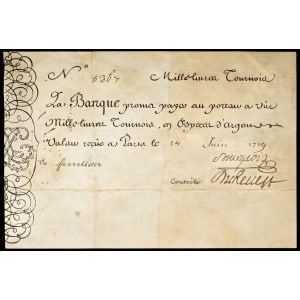 N.º 8367 Mille livres Tournois
La Banque promet payer au porteur à vüe
Mille livres Tournois, en Especes d'argent
Valeur reçüe a Paris le 24 Juin 1719
Bourgeois
Controlé